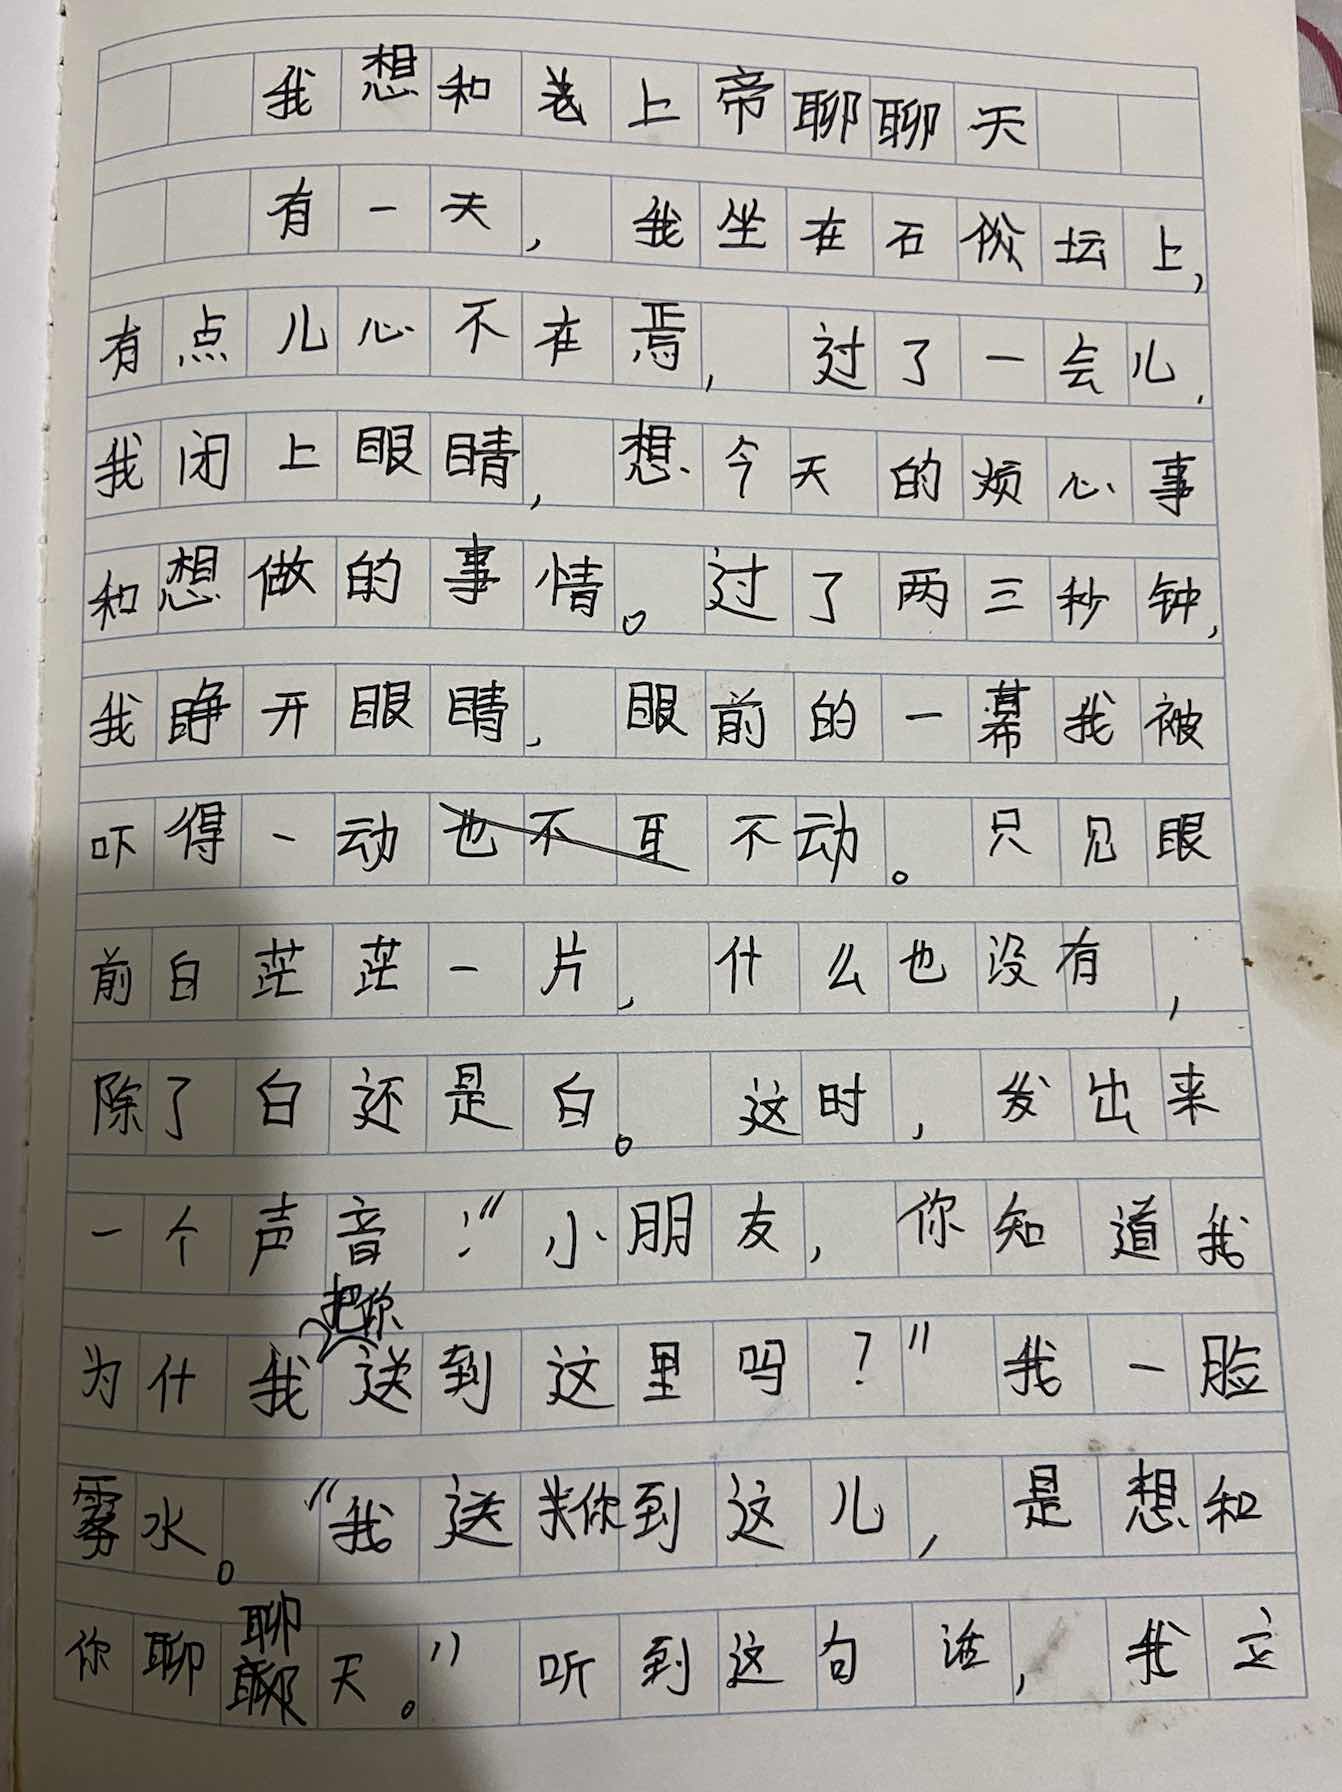 我想和老上帝聊聊天
有一天，我坐在石坛上，
有点儿心不在焉，过了一会儿，
我闭上眼睛，想今天的烦心事
和想做的事情。过了两三秒钟，
我睁开眼睛，眼前的一幕我被
吓得一动不动。只见眼
前白茫茫一片，什么也没有，
除了白还是白。这时，发出来
一个声音：“小朋友，你知道我
为什我把你送到这里吗？”我一脸
雾水。“我送你到这儿，是想和
你聊聊天。”听到这句话，我立